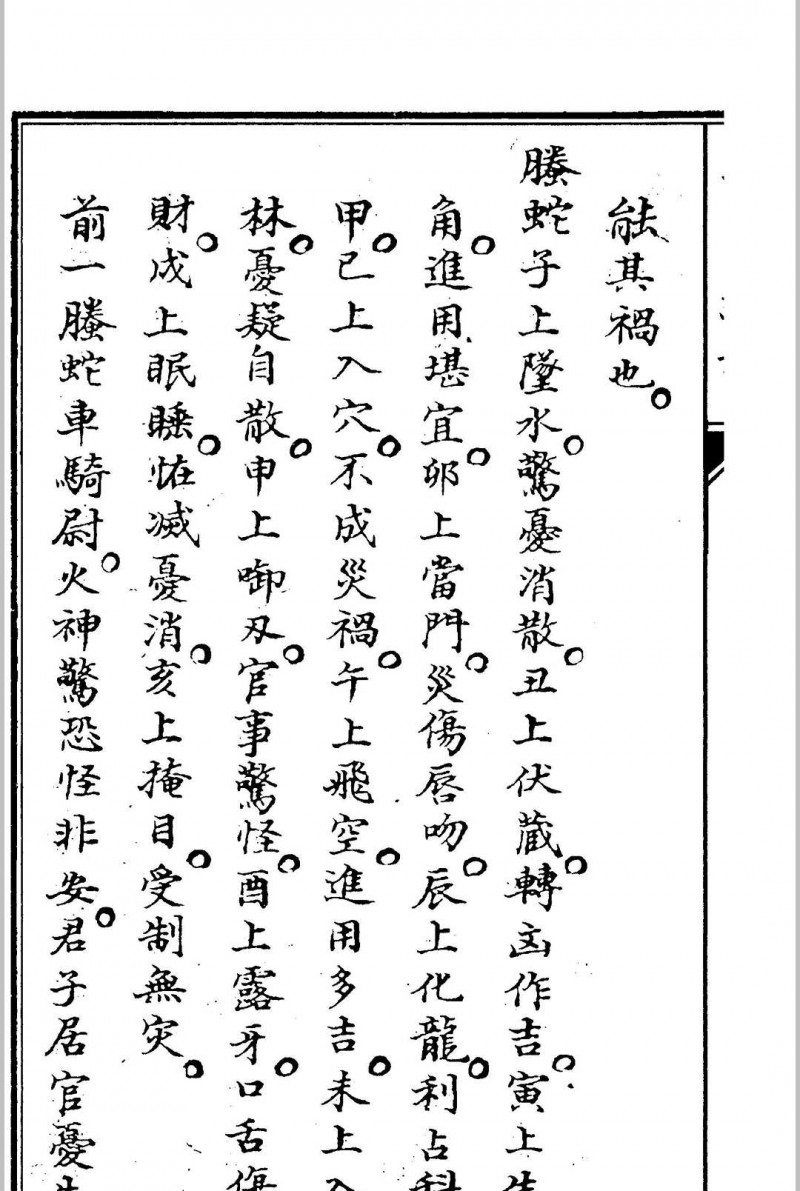 能其禍也。
螣蛇子上墜水。驚憂消散。丑上伏蔵。轉凶作吉。寅上生
角。進用堪宜。卯上當門。災傷唇吻。辰上化龍。利占科
甲。巳上入穴。不成災禍。午上飛空。進用多吉。未上入
林。憂疑自散。申上啣刄。官事驚怪。酉上露牙。口舌傷
財。戌上眠睡。恠滅憂消。亥上掩目。受制無灾。
前一螣蛇車騎尉。火神驚恐怪非安。君子居官憂